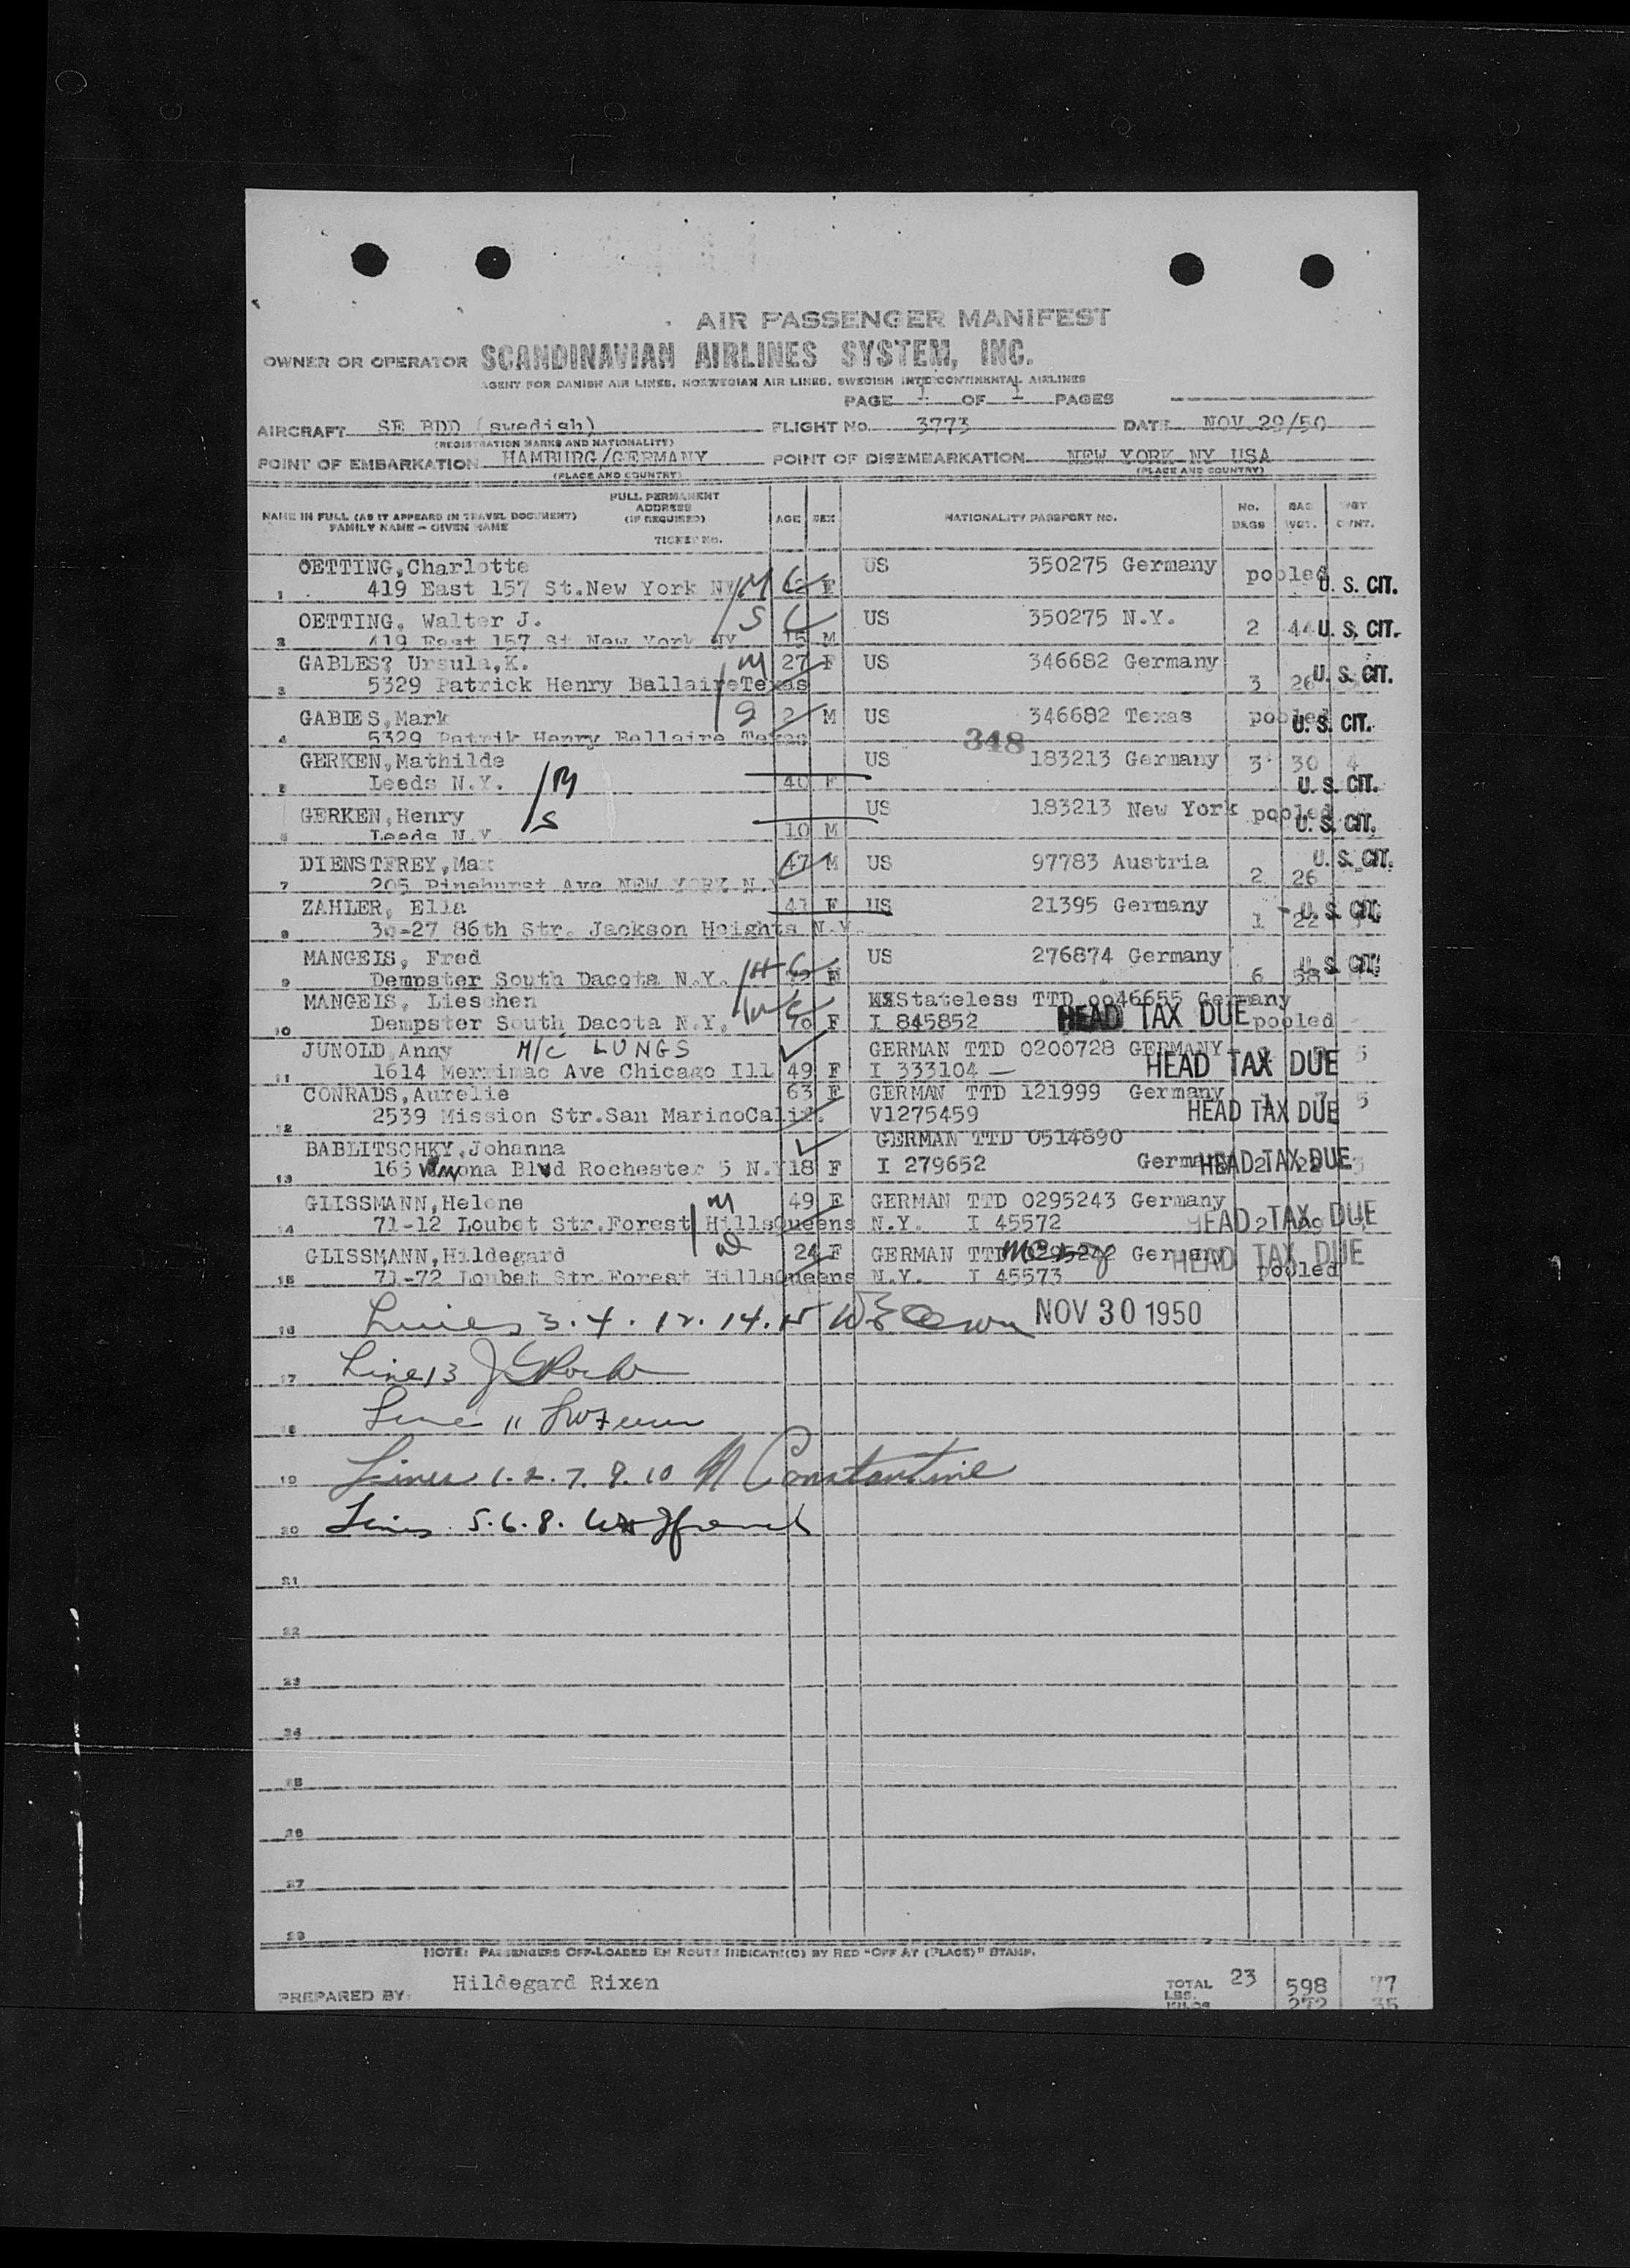 AIR PASSENGER MANIFEST
OWNER OR OPERATOR SCANDINAVIAN AIRLINES SYSTEM, INC.
AGENT FOR DANISH AIR LINES, NORWEGIAN AIR LINES, SWEDISH INTERCONTINENTAL AIRLINES
PAGE 1 OF 1 PAGES
AIRCRAFT SE BDD (swedish) FLIGHT NO. 3773 DATE NOV.29/50
(REGISTRATION MARKS AND NATIONALITY)
POINT OF EMBARKATION HAMBURG/GERMANY POINT OF DISEMBARKATION NEW YORK NY USA
(PLACE AND COUNTRY) (PLACE AND COUNTRY)
FULL PERMANENT
ADDRESS
(IF REQUIRED)
NAME IN FULL (AS IT APPEARS IN TRAVEL DOCUMENT)
FAMILY NAME – GIVEN NAME
TICKET No.
AGE SEX NATIONALITY PASSPORT NO. No. BAGS BAG. WGT. WGT
OETTING,Charlotte US 350275 Germany pooled
1 419 East 157 St.New York NY M F U. S. CIT.
OETTING, Walter J. S US 350275 N.Y.
2 419 East 157 St New York NY 15 M 2 44 U. S. CIT.
GABLES? Ursula,K. M 27 F US 346682 Germany
3 5329 Patrick Henry BallaireTexas 3 26 U. S. CIT.
GABIES,Mark S 2 M US 346682 Texas pooled U. S. CIT.
4 5329 Patrik Henry Bellaire Texas
348
GERKEN,Mathilde US 183213 Germany 3 30 4
5 Leeds N.Y. M 40 F U. S. CIT.
GERKEN,Henry S US 183213 New York pooled U. S. CIT.
6 Leeds N.Y. 10 M
DIENSTFREY,Max 47 M US 97783 Austria U. S. CIT.
7 205 Pinehurst Ave NEW YORK N.Y 2 26
ZAHLER, Ella 41 F US 21395 Germany U. S. CIT.
8 30-27 86th Str. Jackson Heights N.Y. 1 22
MANGEIS, Fred US 276874 Germany U. S. CIT.
9 Dempster South Dacota N.Y. H 6 58
MANGEIS, Lieschen W Stateless TTD 0046655 Germany
10 Dempster South Dacota N.Y. 70 F I 845852 HEAD TAX DUE pooled
JUNOLD,Anny M/C LUNGS GERMAN TTD 0200728 GERMANY 5
11 1614 Merrimac Ave Chicago Ill 49 F I 333104 — HEAD TAX DUE
CONRADS,Aurelie 63 F GERMAN TTD 121999 Germany 5
12 2539 Mission Str.San MarinoCalif. V1275459 HEAD TAX DUE
BABLITSCHKY,Johanna GERMAN TTD 0514890
13 165 Winona Blvd Rochester 5 N.Y 18 F I 279652 Germany HEAD TAX DUE
GLISSMANN,Helene M 49 F GERMAN TTD 0295243 Germany
14 71-12 Loubet Str.Forest HillsQueens N.Y. I 45572 HEAD TAX DUE
GLISSMANN,Hildegard D 24 F GERMAN TTD 0295242 Germany HEAD TAX DUE
15 71-72 Loubet Str Forest HillsQueens N.Y. I 45573 pooled
16 Lines 3.4.12.14.15 NOV 30 1950
17 Line 13
18 Line 11
19 Lines 1.2.7.9.10 Constantine
20 Lines 5.6.8.
21
22
23
24
25
26
27
28
NOTE: PASSENGERS OFF-LOADED EN ROUTE INDICATE(D) BY RED "OFF AT (PLACE)" STAMP.
PREPARED BY: Hildegard Rixen
TOTAL 23
LBS. 598 77
KILOS 272 35